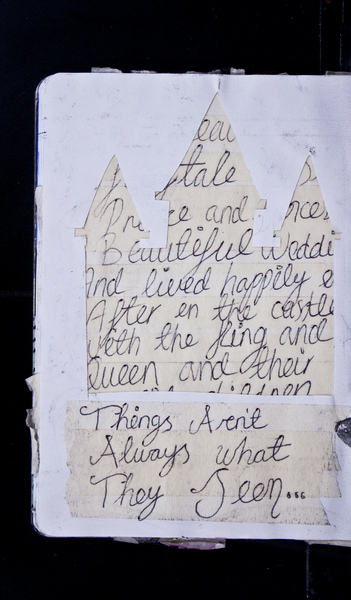 tale
and
Beautiful Weddi
And lived happily e
After en the castle
with the King and
Queen and their
Things Aren't
Always what
They Seem...